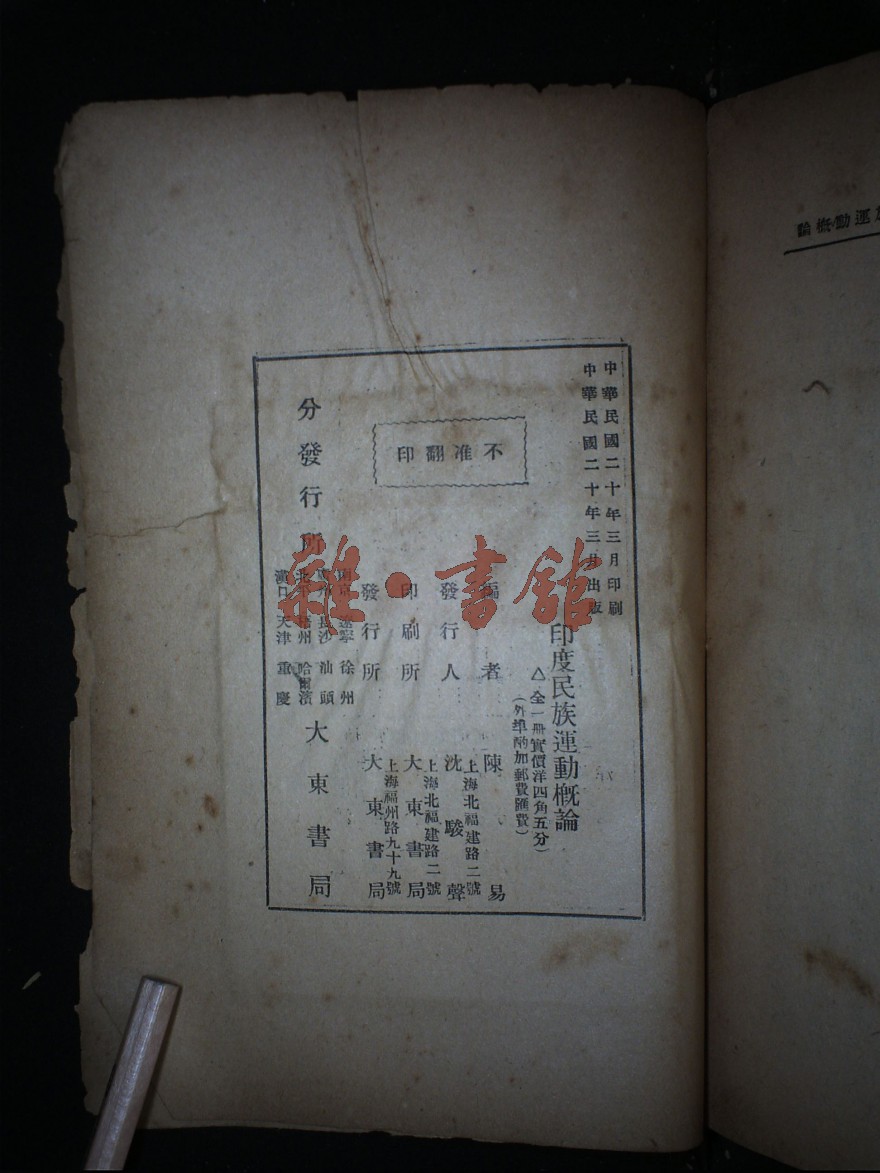 中華民國二十年三月印刷
中華民國二十年三月出版
印度民族運動概論
△全一冊實價洋四角五分
(外埠酌加郵費匯費)
不准翻印
編者 陳易
發行人 沈駿聲
上海北福建路二號
印刷所 大東書局
上海北福建路二號
發行所 大東書局
上海福州路九十九號
分發行所
南京 遼寧 徐州
長沙 汕頭
北平 哈爾濱
漢口 天津 重慶
大東書局
雜·書館
族運動概論